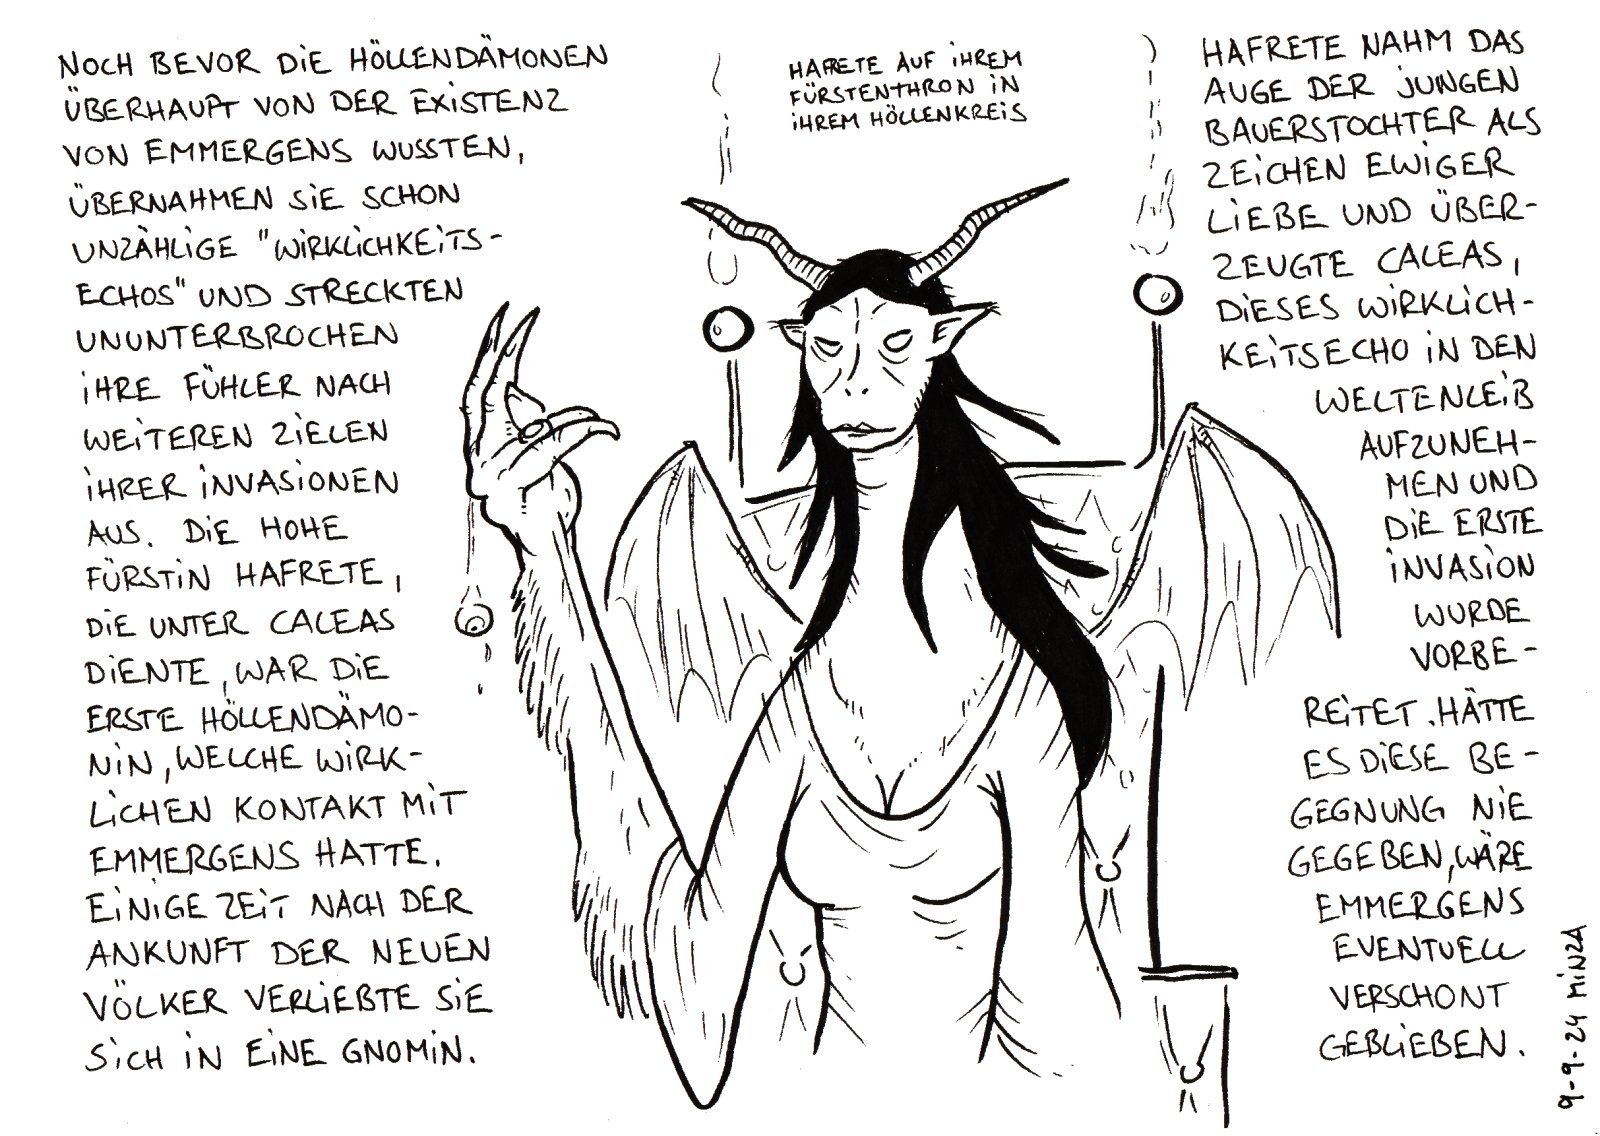 NOCH BEVOR DIE HÖLLENDÄMONEN
ÜBERHAUPT VON DER EXISTENZ
VON EMMERGENS WUSSTEN,
ÜBERNAHMEN SIE SCHON
UNZÄHLIGE "WIRKLICHKEITS-
ECHOS" UND STRECKTEN
UNUNTERBROCHEN
IHRE FÜHLER NACH
WEITEREN ZIELEN
IHRER INVASIONEN
AUS. DIE HOHE
FÜRSTIN HAFRETE,
DIE UNTER CALEAS
DIENTE, WAR DIE
ERSTE HÖLLENDÄMO-
NIN, WELCHE WIRK-
LICHEN KONTAKT MIT
EMMERGENS HATTE.
EINIGE ZEIT NACH DER
ANKUNFT DER NEUEN
VÖLKER VERLIEBTE SIE
SICH IN EINE GNOMIN.
HAFRETE AUF IHREM
FÜRSTENTHRON IN
IHREM HÖLLENKREIS
HAFRETE NAHM DAS
AUGE DER JUNGEN
BAUERSTOCHTER ALS
ZEICHEN EWIGER
LIEBE UND ÜBER-
ZEUGTE CALEAS,
DIESES WIRKLICH-
KEITSECHO IN DEN
WELTENLEIB
AUFZUNEH-
MEN UND
DIE ERSTE
INVASION
WURDE
VORBE-
REITET. HÄTTE
ES DIESE BE-
GEGNUNG NIE
GEGEBEN, WÄRE
EMMERGENS
EVENTUELL
VERSCHONT
GEBLIEBEN.
9-9-24 MINZA